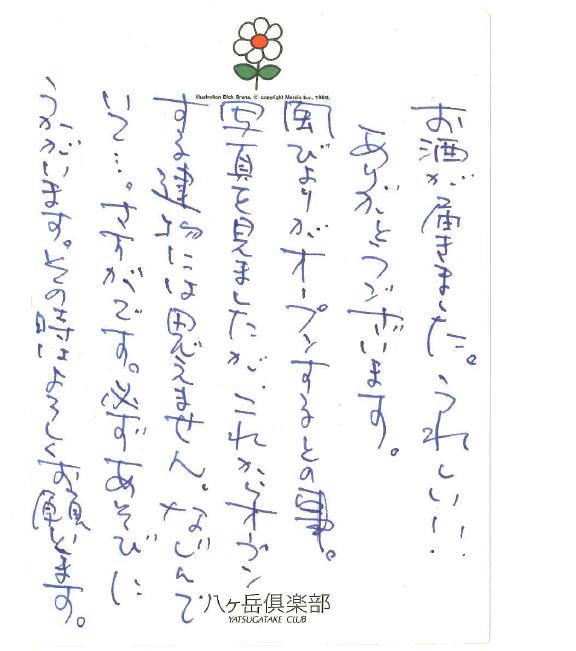 Illustration Dick Bruna. © copyright Mercis b.v., 1989.
お酒が届きました。うれしい!!
ありがとうございます。
風びよりがオープンするとの事。
写真を見ましたが、これからオープン
する建物には思えません。なじんで
いて…。さすがです。必ずあそびに
うかがいます。その時はよろしくお願いします。
八ヶ岳倶楽部
YATSUGATAKE CLUB